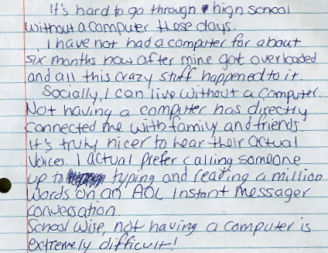 It's hard to go through high school
without a computer these days.
I have not had a computer for about
six months now after mine got overloaded
and all this crazy stuff happened to it.
Socially, I can live without a computer.
Not having a computer has directly
connected me with family and friends.
It's truly nicer to hear their actual
voices. I actual prefer calling someone
up to typing and reading a million
words on an AOL Instant Messager
conversation.
School wise, not having a computer is
extremely difficult!